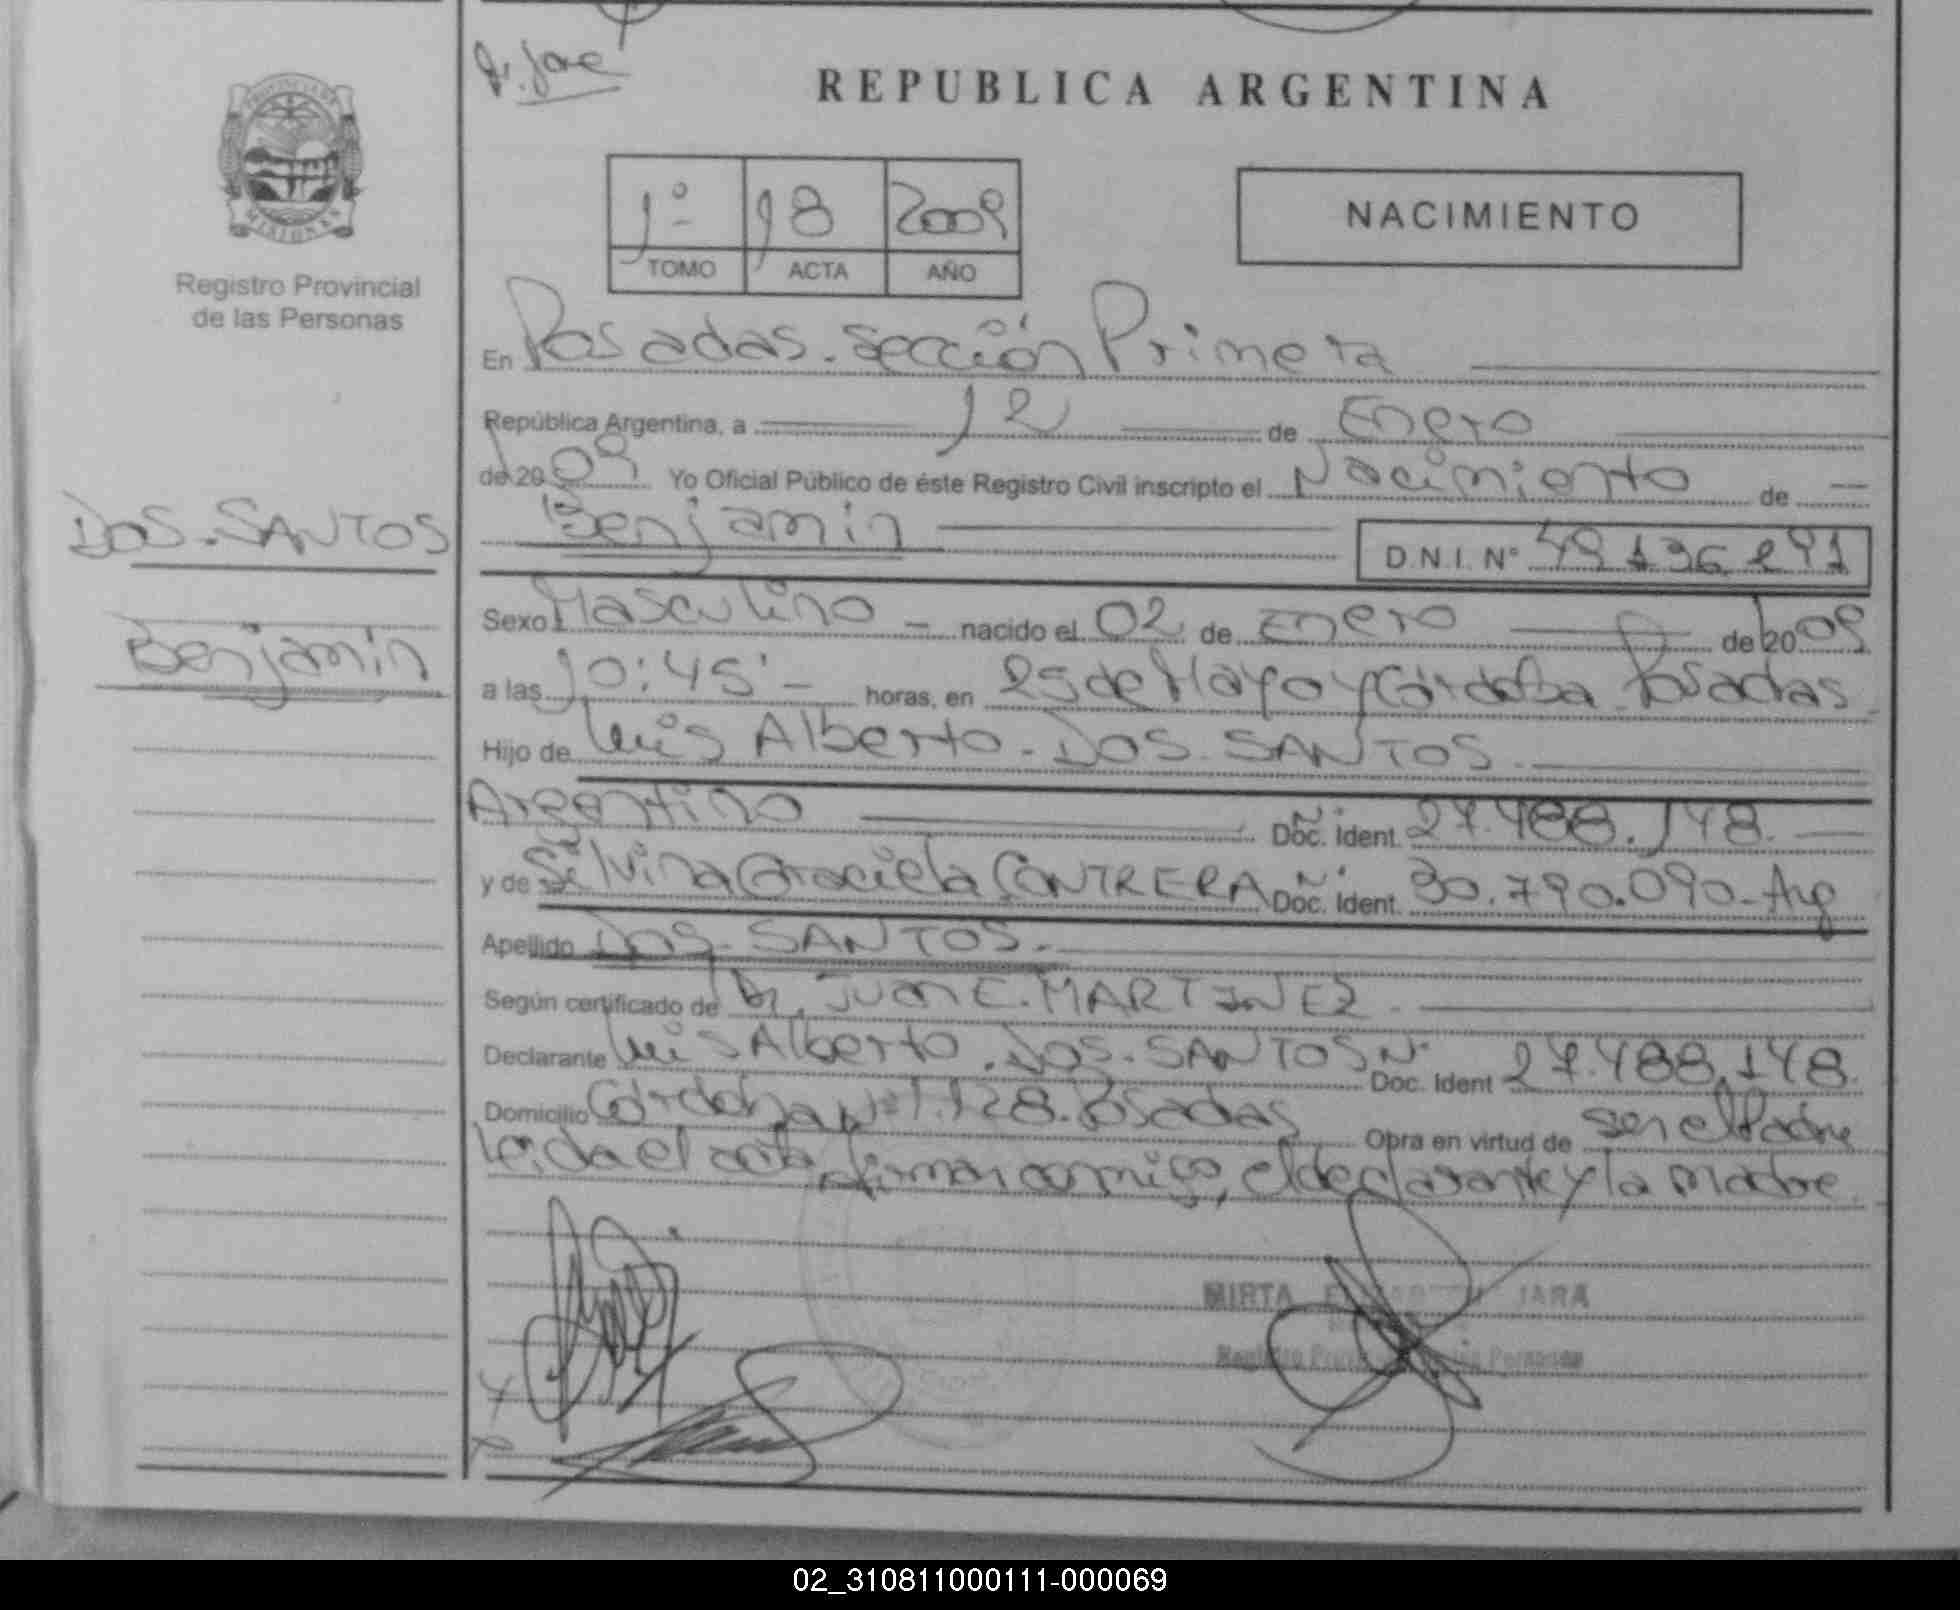 REPUBLICA ARGENTINA
1º 18 2009
TOMO ACTA AÑO
NACIMIENTO
PROVINCIA DE MISIONES
Registro Provincial
de las Personas
DOS. SANTOS
Benjamin
En Posadas. Sección Primera
República Argentina, a 12 de Enero
de 20 09 Yo Oficial Público de éste Registro Civil inscripto el Nacimiento de
Benjamin D.N.I. Nº 49.136.291
Sexo Masculino nacido el 02 de Enero de 2009
a las 10:45' horas, en 25 de Mayo y Córdoba Posadas.
Hijo de Luis Alberto. DOS. SANTOS.
Argentino Doc. Ident. 27.488.148.
y de Silvina Graciela CONTRERA Doc. Ident. 30.790.090. Arg
Apellido DOS. SANTOS.
Según certificado de Dr. Juan E. MARTINEZ.
Declarante Luis Alberto. DOS. SANTOS Nº Doc. Ident 27.488.148.
Domicilio Córdoba Nº 1.128. Posadas Obra en virtud de ser el Padre
Leida el acta firman conmigo, el declarante y la madre.
MIRTA JARA
Registro de las Personas
02_310811000111-000069